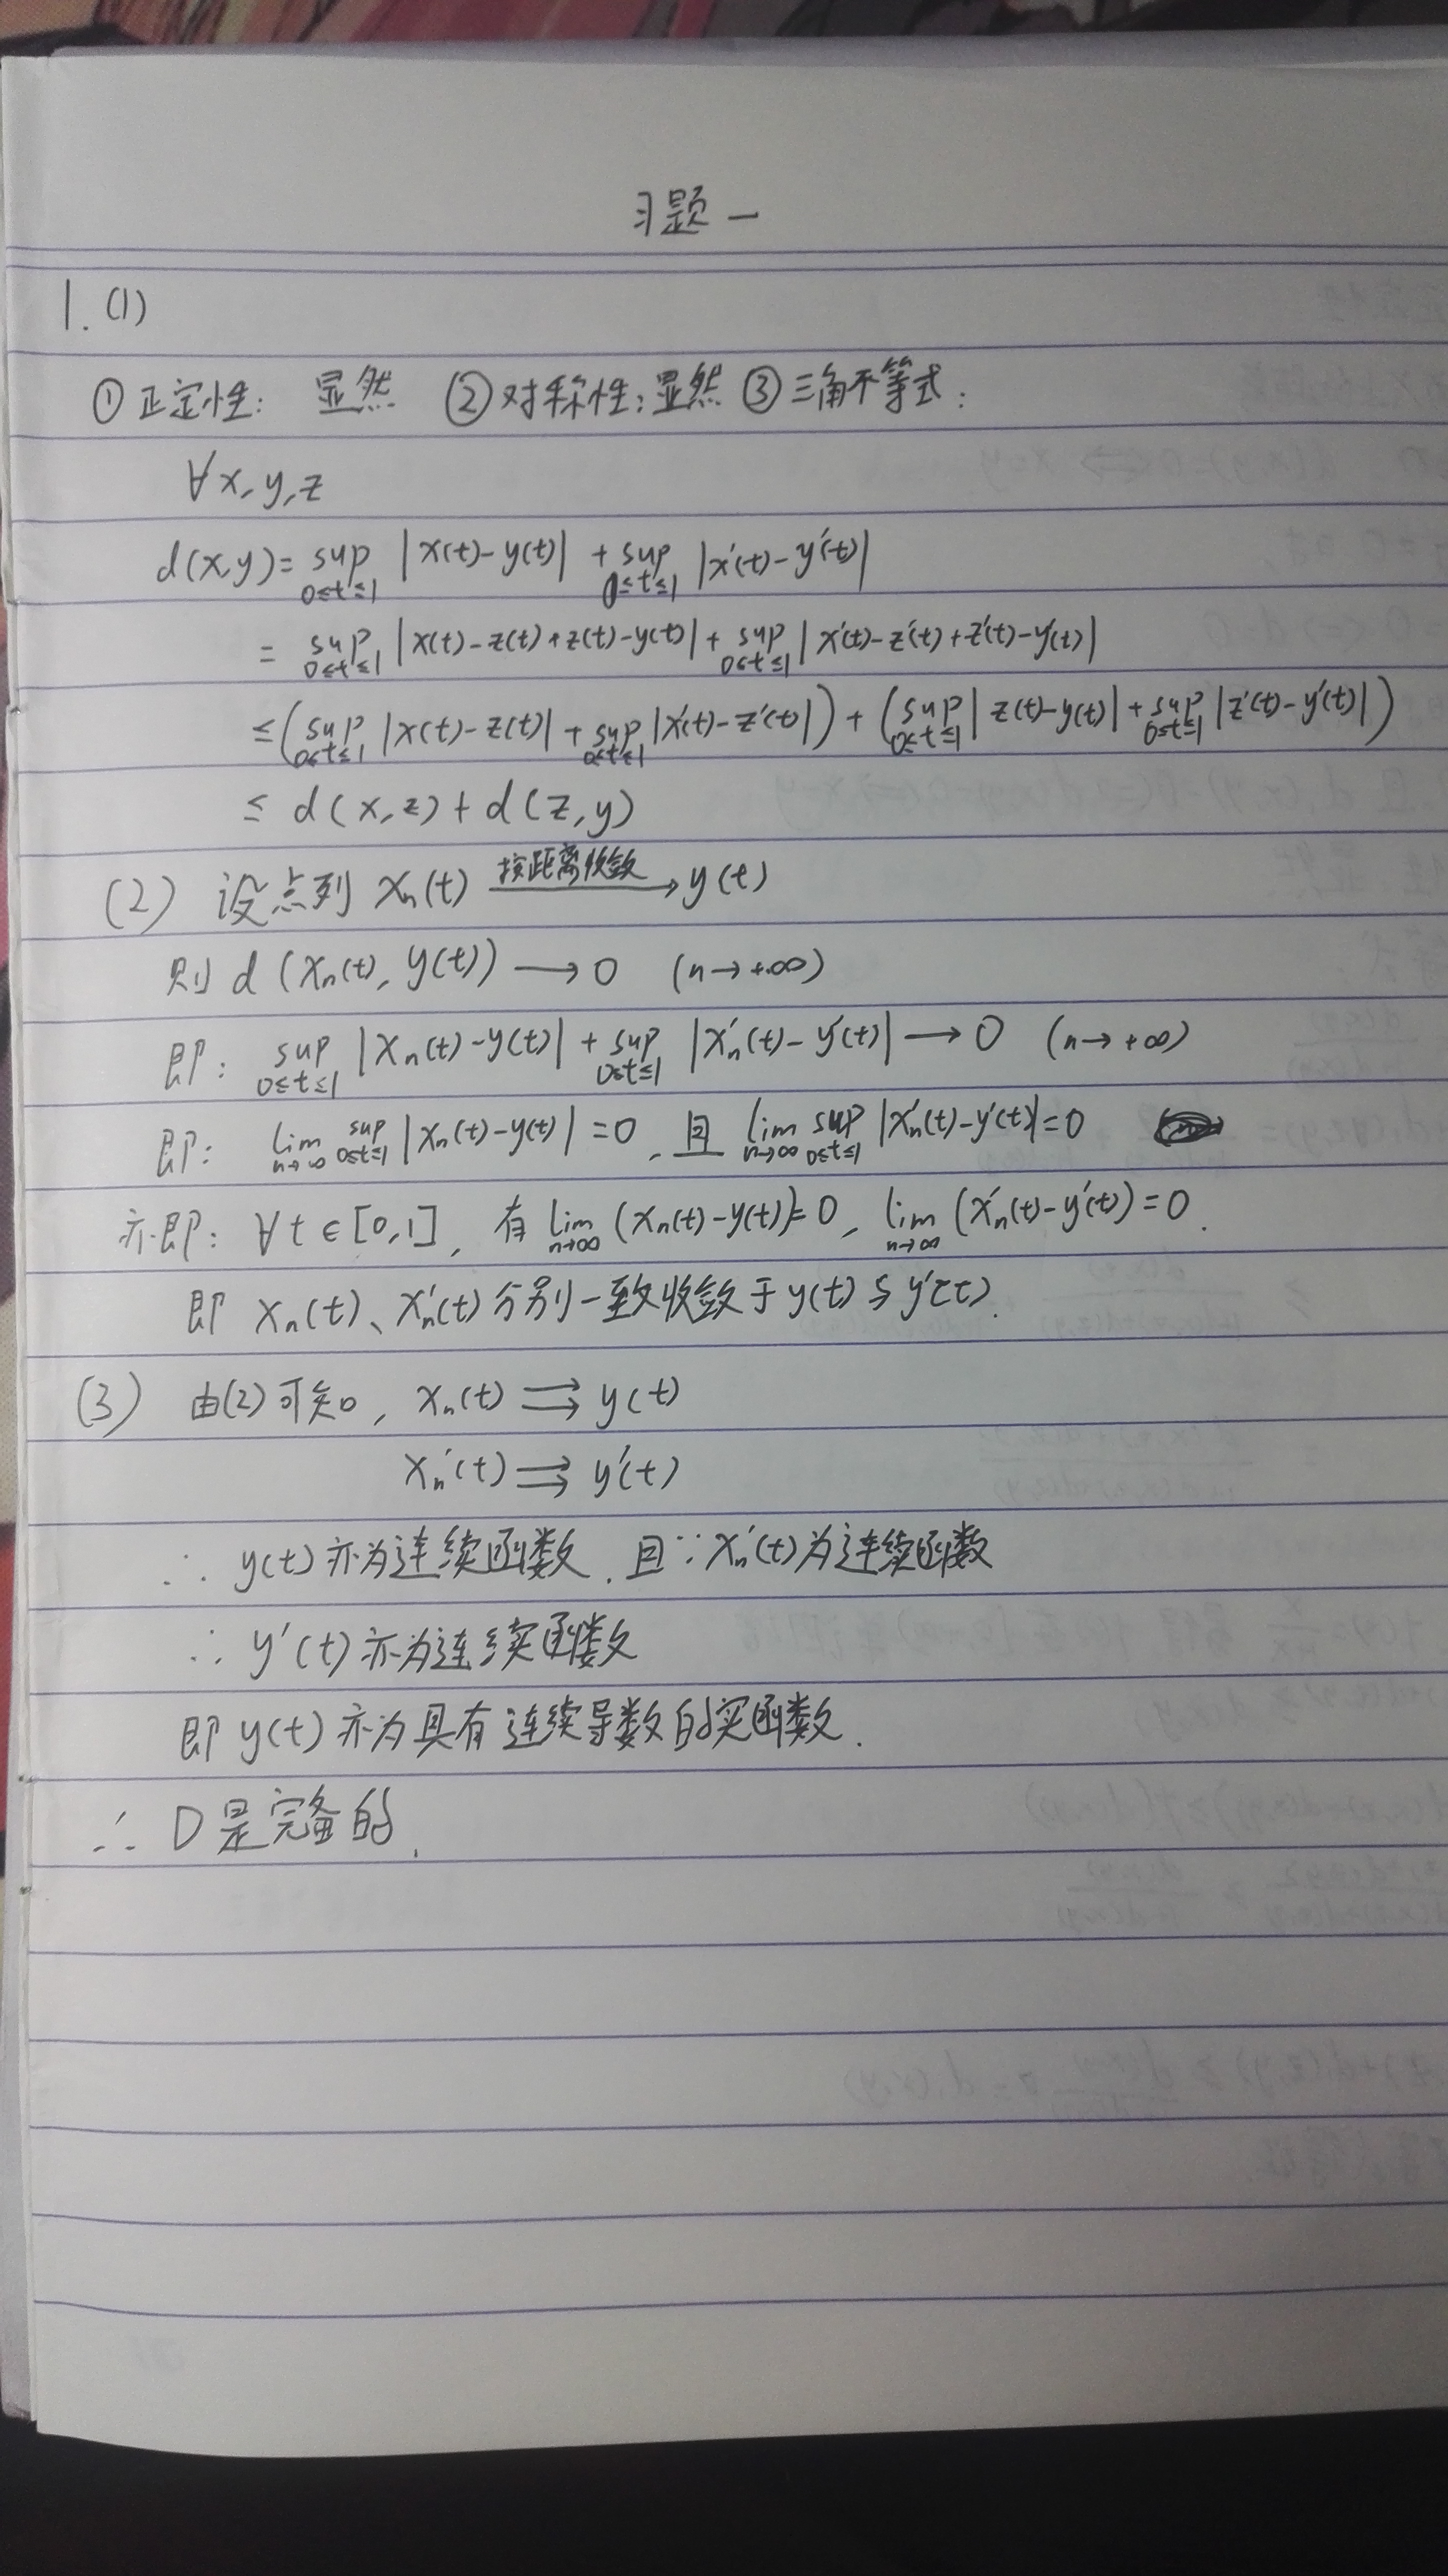 习题一
1.(1)
①正定性: 显然 ②对称性:显然 ③三角不等式:
∀x,y,z
d(x,y)= sup_{0≤t≤1} |x(t)-y(t)| + sup_{0≤t≤1} |x'(t)-y'(t)|
= sup_{0≤t≤1} |x(t)-z(t)+z(t)-y(t)| + sup_{0≤t≤1} |x'(t)-z'(t)+z'(t)-y'(t)|
≤(sup_{0≤t≤1} |x(t)-z(t)| + sup_{0≤t≤1} |x'(t)-z'(t)|) + (sup_{0≤t≤1} |z(t)-y(t)| + sup_{0≤t≤1} |z'(t)-y'(t)|)
≤ d(x,z)+d(z,y)
(2) 设点列 xₙ(t) —按距离收敛→ y(t)
则 d(xₙ(t), y(t)) → 0 (n→+∞)
即: sup_{0≤t≤1} |xₙ(t)-y(t)| + sup_{0≤t≤1} |xₙ'(t)-y'(t)| → 0 (n→+∞)
即: lim_{n→∞} sup_{0≤t≤1} |xₙ(t)-y(t)|=0, 且 lim_{n→∞} sup_{0≤t≤1} |xₙ'(t)-y'(t)|=0
亦即: ∀t∈[0,1], 有 lim_{n→∞} (xₙ(t)-y(t))=0, lim_{n→∞} (xₙ'(t)-y'(t))=0.
即 xₙ(t)、xₙ'(t)分别一致收敛于y(t)与y'(t).
(3) 由(2)可知, xₙ(t) ⇉ y(t)
xₙ'(t) ⇉ y'(t)
∴ y(t)亦为连续函数. 且∵xₙ'(t)为连续函数
∴ y'(t)亦为连续函数
即 y(t)亦为具有连续导数的实函数.
∴ D是完备的.